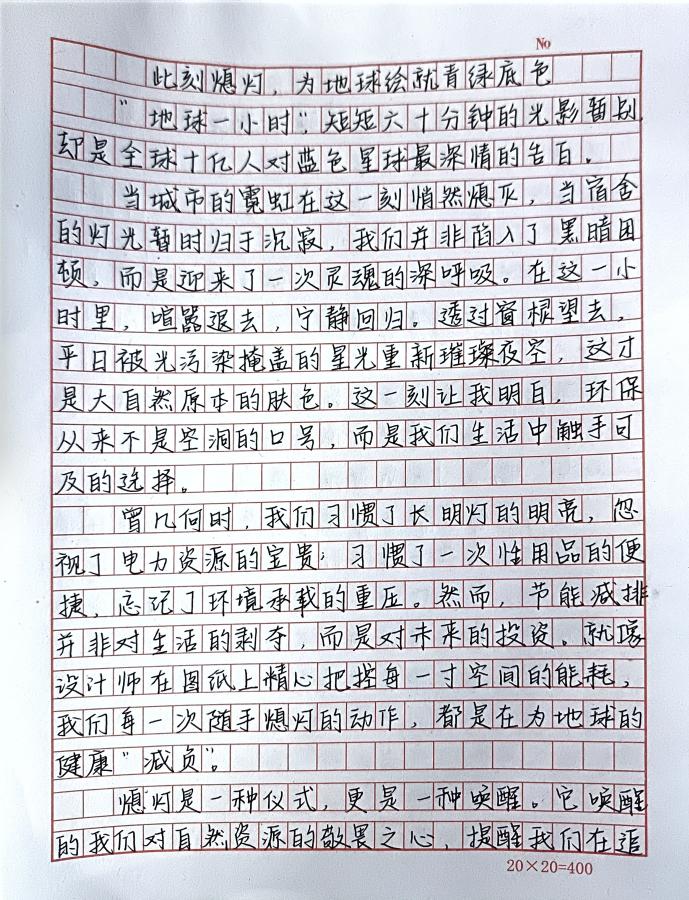 No
此刻熄灯，为地球绘就青绿底色
“地球一小时”，短短六十分钟的光影暂别，
却是全球十亿人对蓝色星球最深情的告白。
当城市的霓虹在这一刻悄然熄灭，当宿舍
的灯光暂时归于沉寂，我们并非陷入了黑暗困
顿，而是迎来了一次灵魂的深呼吸。在这一小
时里，喧嚣退去，宁静回归。透过窗棂望去，
平日被光污染掩盖的星光重新璀璨夜空，这才
是大自然原本的肤色。这一刻让我明白，环保
从来不是空洞的口号，而是我们生活中触手可
及的选择。
曾几何时，我们习惯了长明灯的明亮，忽
视了电力资源的宝贵；习惯了一次性用品的便
捷，忘记了环境承载的重压。然而，节能减排
并非对生活的剥夺，而是对未来的投资。就像
设计师在图纸上精心把控每一寸空间的能耗，
我们每一次随手熄灯的动作，都是在为地球的
健康“减负”。
熄灯是一种仪式，更是一种唤醒。它唤醒
的我们对自然资源的敬畏之心，提醒我们在追
20×20=400